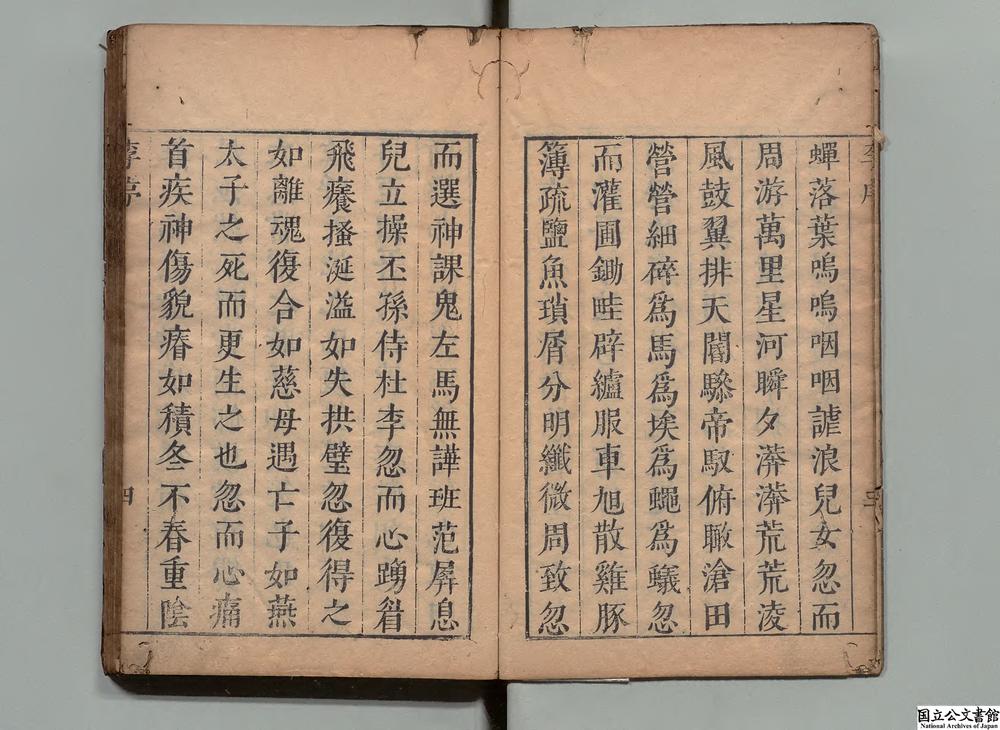 蟬落葉嗚嗚咽咽謔浪兒女忽而
周游萬里星河瞬夕漭漭荒荒凌
風鼓翼排天閶驂帝馭俯瞰滄田
營營細碎爲馬爲埃爲蠅爲蟻忽
而灌圃鋤畦辟纑服車旭散雞豚
簿疏鹽魚瑣屑分明纖微周致忽
而選神課鬼左馬無譁班范屏息
兒立操丕孫侍杜李忽而心踴眉
飛癢搔涎溢如失拱璧忽復得之
如離魂復合如慈母遇亡子如燕
太子之死而更生之也忽而心痛
首疾神傷貌瘠如積冬不春重陰
四
国立公文書館
National Archives of Japan